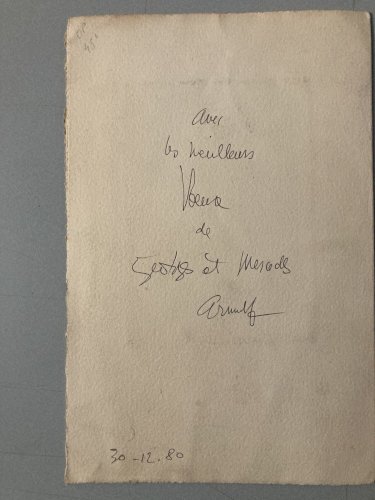 avec
les meilleurs
Voeux
de
Georges et Mercedes
Arnulf
30-12.80